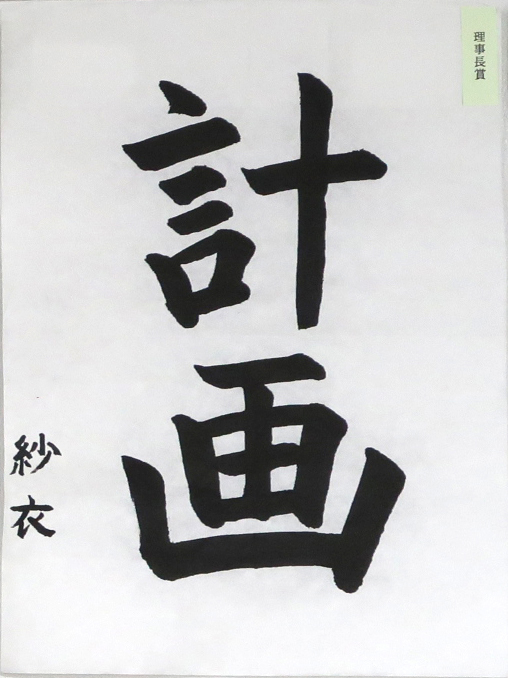 理事長賞
計画
紗衣